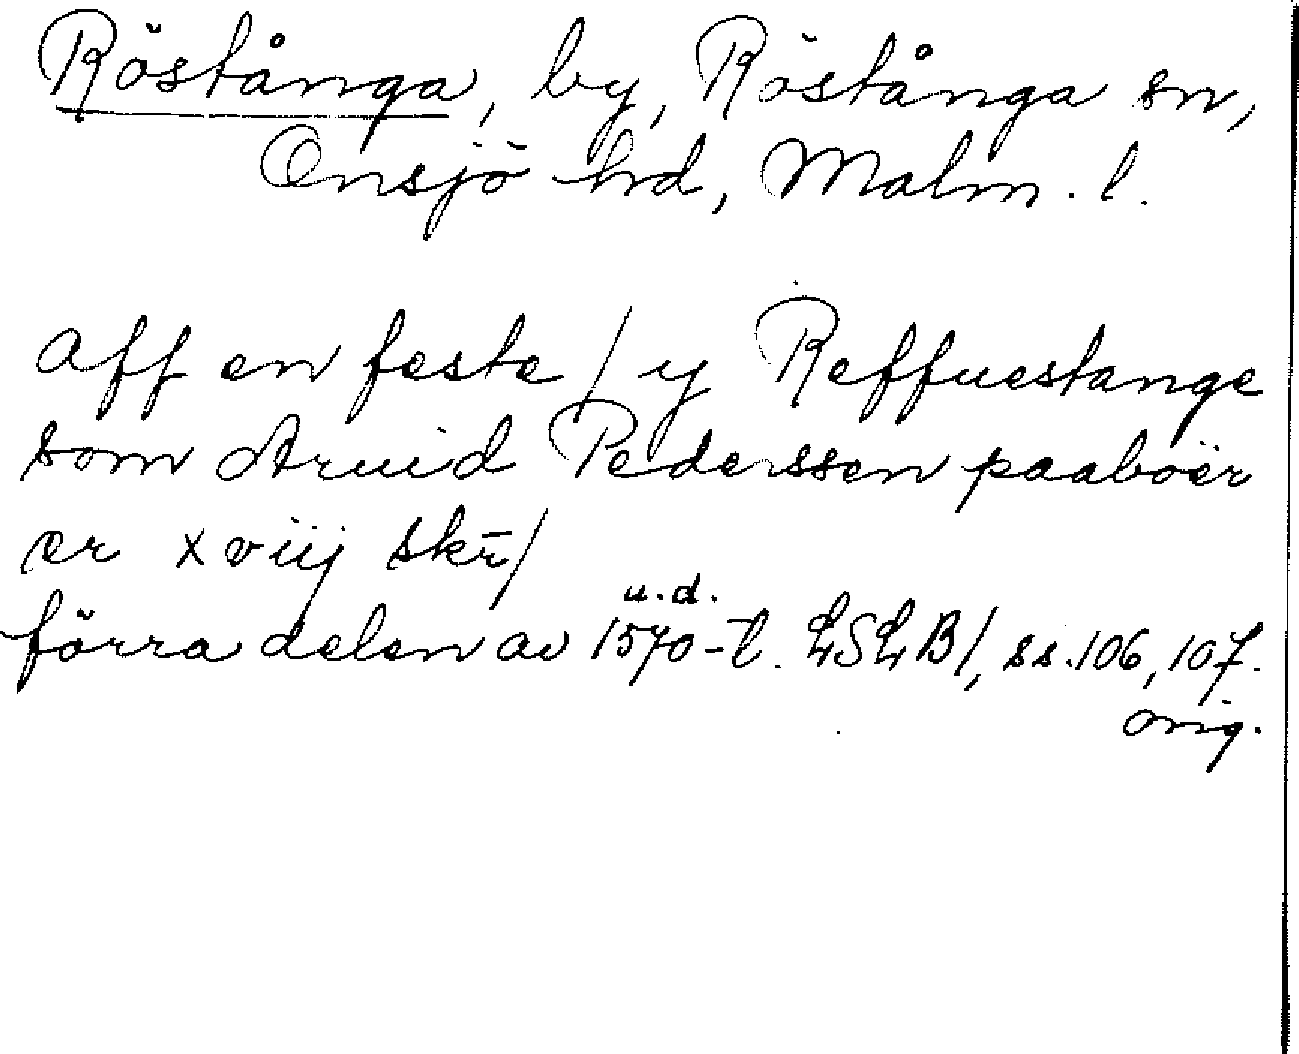 Röstånga, by, Röstånga sn,
Onsjö hd, Malm. l.
aff en feste / y Reffuestange
som Aruid Pederssen paaboër
er xviij skr̄/
u.d.
förra delen av 1570-t. LSLB/, ss.106, 107.
orig.